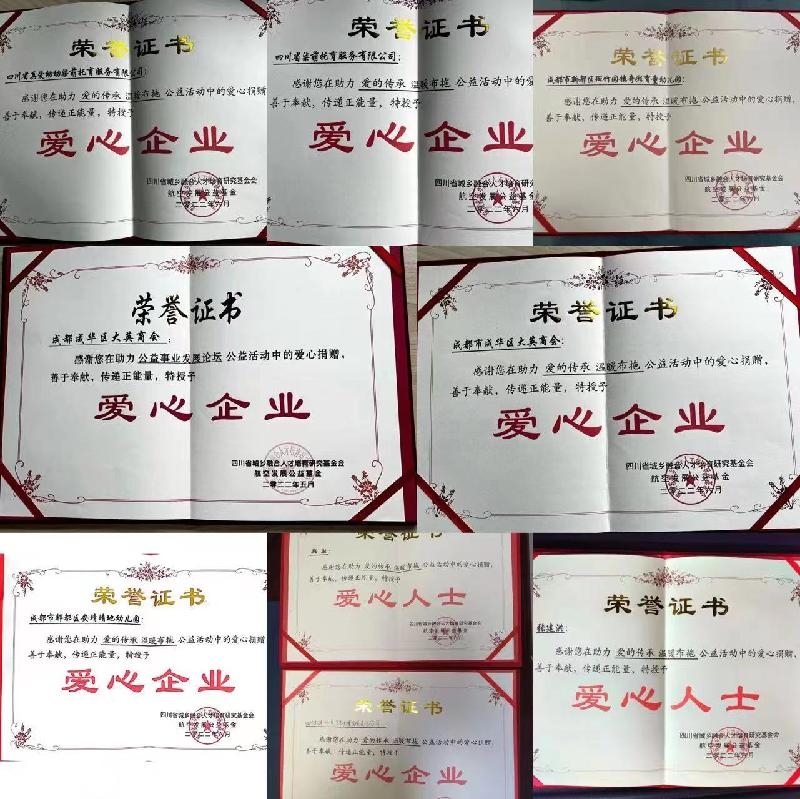 荣誉证书
四川省
托育服务有限公司：
感谢您在助力 爱的传承 温暖布拖 公益活动中的爱心捐赠
善于奉献，传递正能量，特授予
爱心企业
四川省城乡融合人才培育研究基金会
航空发展公益基金
二〇二二年六月
荣誉证书
四川省
托育服务有限公司：
感谢您在助力 爱的传承 温暖布拖 公益活动中的爱心捐赠
善于奉献，传递正能量，特授予
爱心企业
四川省城乡融合人才培育研究基金会
航空发展公益基金
二〇二二年六月
荣誉证书
成都市郫都区
幼儿园：
感谢您在助力 爱的传承 温暖布拖 公益活动中的爱心捐赠，
善于奉献，传递正能量，特授予
爱心企业
四川省城乡融合人才培育研究基金会
航空发展公益基金
二〇二二年六月
荣誉证书
成都成华区大英商会：
感谢您在助力 公益事业发展论坛 公益活动中的爱心捐赠，
善于奉献，传递正能量，特授予
爱心企业
四川省城乡融合人才培育研究基金会
航空发展公益基金
二〇二二年五月
荣誉证书
成都市成华区大英商会：
感谢您在助力 爱的传承 温暖布拖 公益活动中的爱心捐赠，
善于奉献，传递正能量，特授予
爱心企业
四川省城乡融合人才培育研究基金会
航空发展公益基金
二〇二二年六月
荣誉证书
成都市郫都区
幼儿园：
感谢您在助力 爱的传承 温暖布拖 公益活动中的爱心捐赠
善于奉献，传递正能量，特授予
爱心企业
四川省城乡融合人才培育研究基金会
航空发展公益基金
二〇二二年六月
感谢您在助力 爱的传承 温暖布拖 公益活动中的爱心捐赠，
善于奉献，传递正能量，特授予
爱心人士
四川省城乡融合人才培育研究基金会
航空发展公益基金
二〇二二年六月
荣誉证书
感谢您在助力 爱的传承 温暖布拖 公益活动中的爱心捐赠，
善于奉献，传递正能量，特授予
爱心企业
四川省城乡融合人才培育研究基金会
荣誉证书
张建洪：
感谢您在助力 爱的传承 温暖布拖 公益活动中的爱心捐赠，
善于奉献，传递正能量，特授予
爱心人士
四川省城乡融合人才培育研究基金会
航空发展公益基金
二〇二二年六月